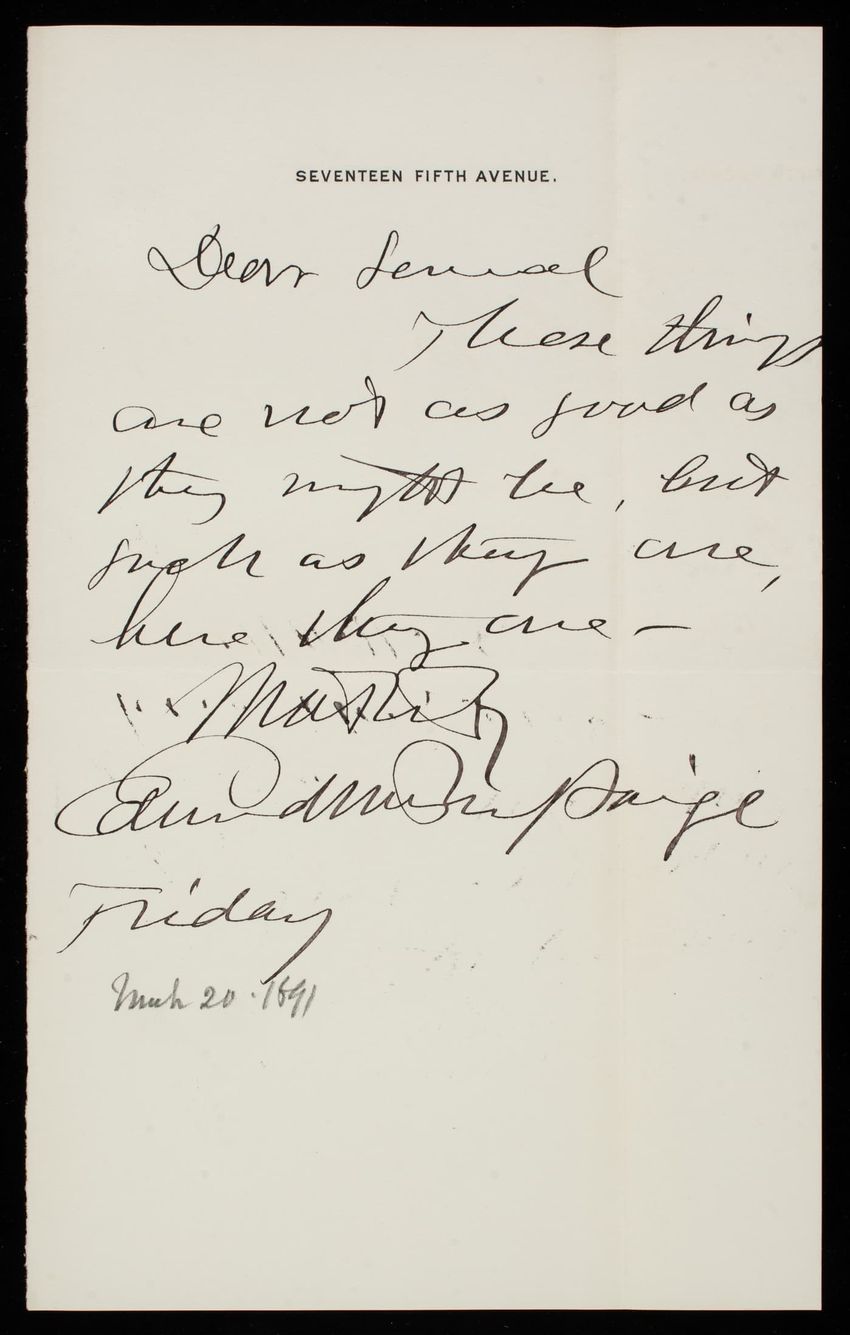 SEVENTEEN FIFTH AVENUE.
Dear General
These things
are not as good as
they might be, but
such as they are,
here they are —
Friday
March 20 · 1891